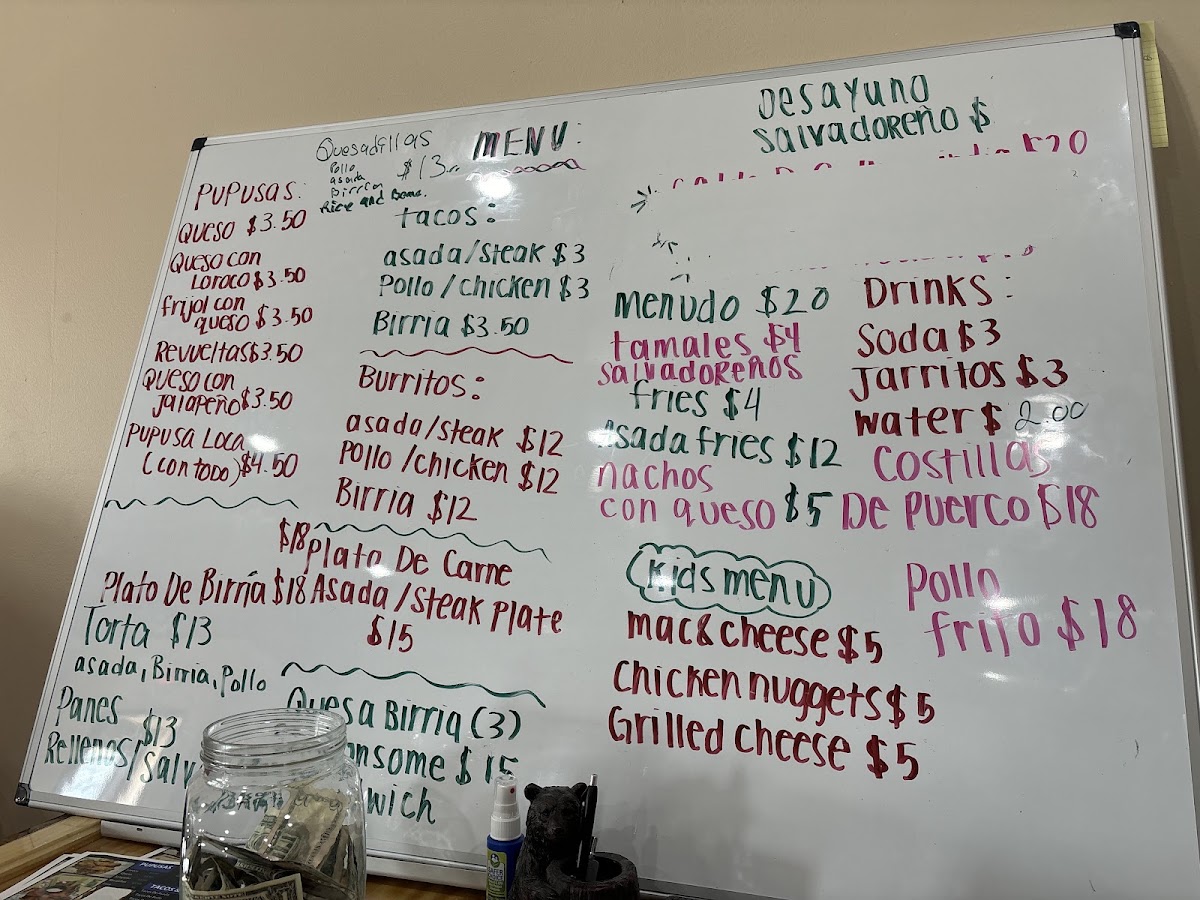 MENU:
Quesadillas
Pollo
asada
Birria
$13
Rice and Beans.
PUPUSAS:
Queso $3.50
Queso con
Loroco $3.50
frijol con
queso $3.50
Revueltas $3.50
Queso con
jalapeño $3.50
PUPUSA LOCA
(con todo) $4.50
tacos:
asada/steak $3
Pollo/chicken $3
Birria $3.50
Burritos:
asada/steak $12
Pollo/chicken $12
Birria $12
$18 Plato De Carne
Asada/steak Plate
$15
Plato De Birria $18
Torta $13
asada, Birria, Pollo
Panes $13
Rellenos/Salv
wich
Quesa Birria (3)
nsome $15
Desayuno
Salvadoreño $
$20
menudo $20
tamales $4
salvadoreños
fries $4
Asada fries $12
nachos
con queso $5
Drinks:
Soda $3
Jarritos $3
water $2.00
Costillas
De Puerco $18
Pollo
frito $18
Kids menu
mac & cheese $5
Chicken nuggets $5
Grilled cheese $5
PUPUSAS
TACOS